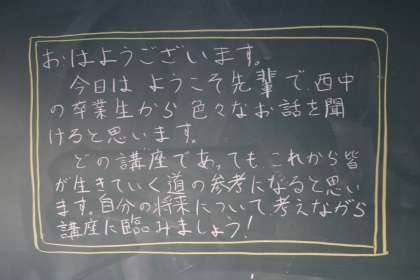 おはようございます。
今日は ようこそ先輩で、西中
の卒業生から 色々なお話を聞
けると思います。
どの講座であっても これから皆
が生きていく道の参考になると思い
ます。自分の将来について、考えながら
講座に臨みましょう!